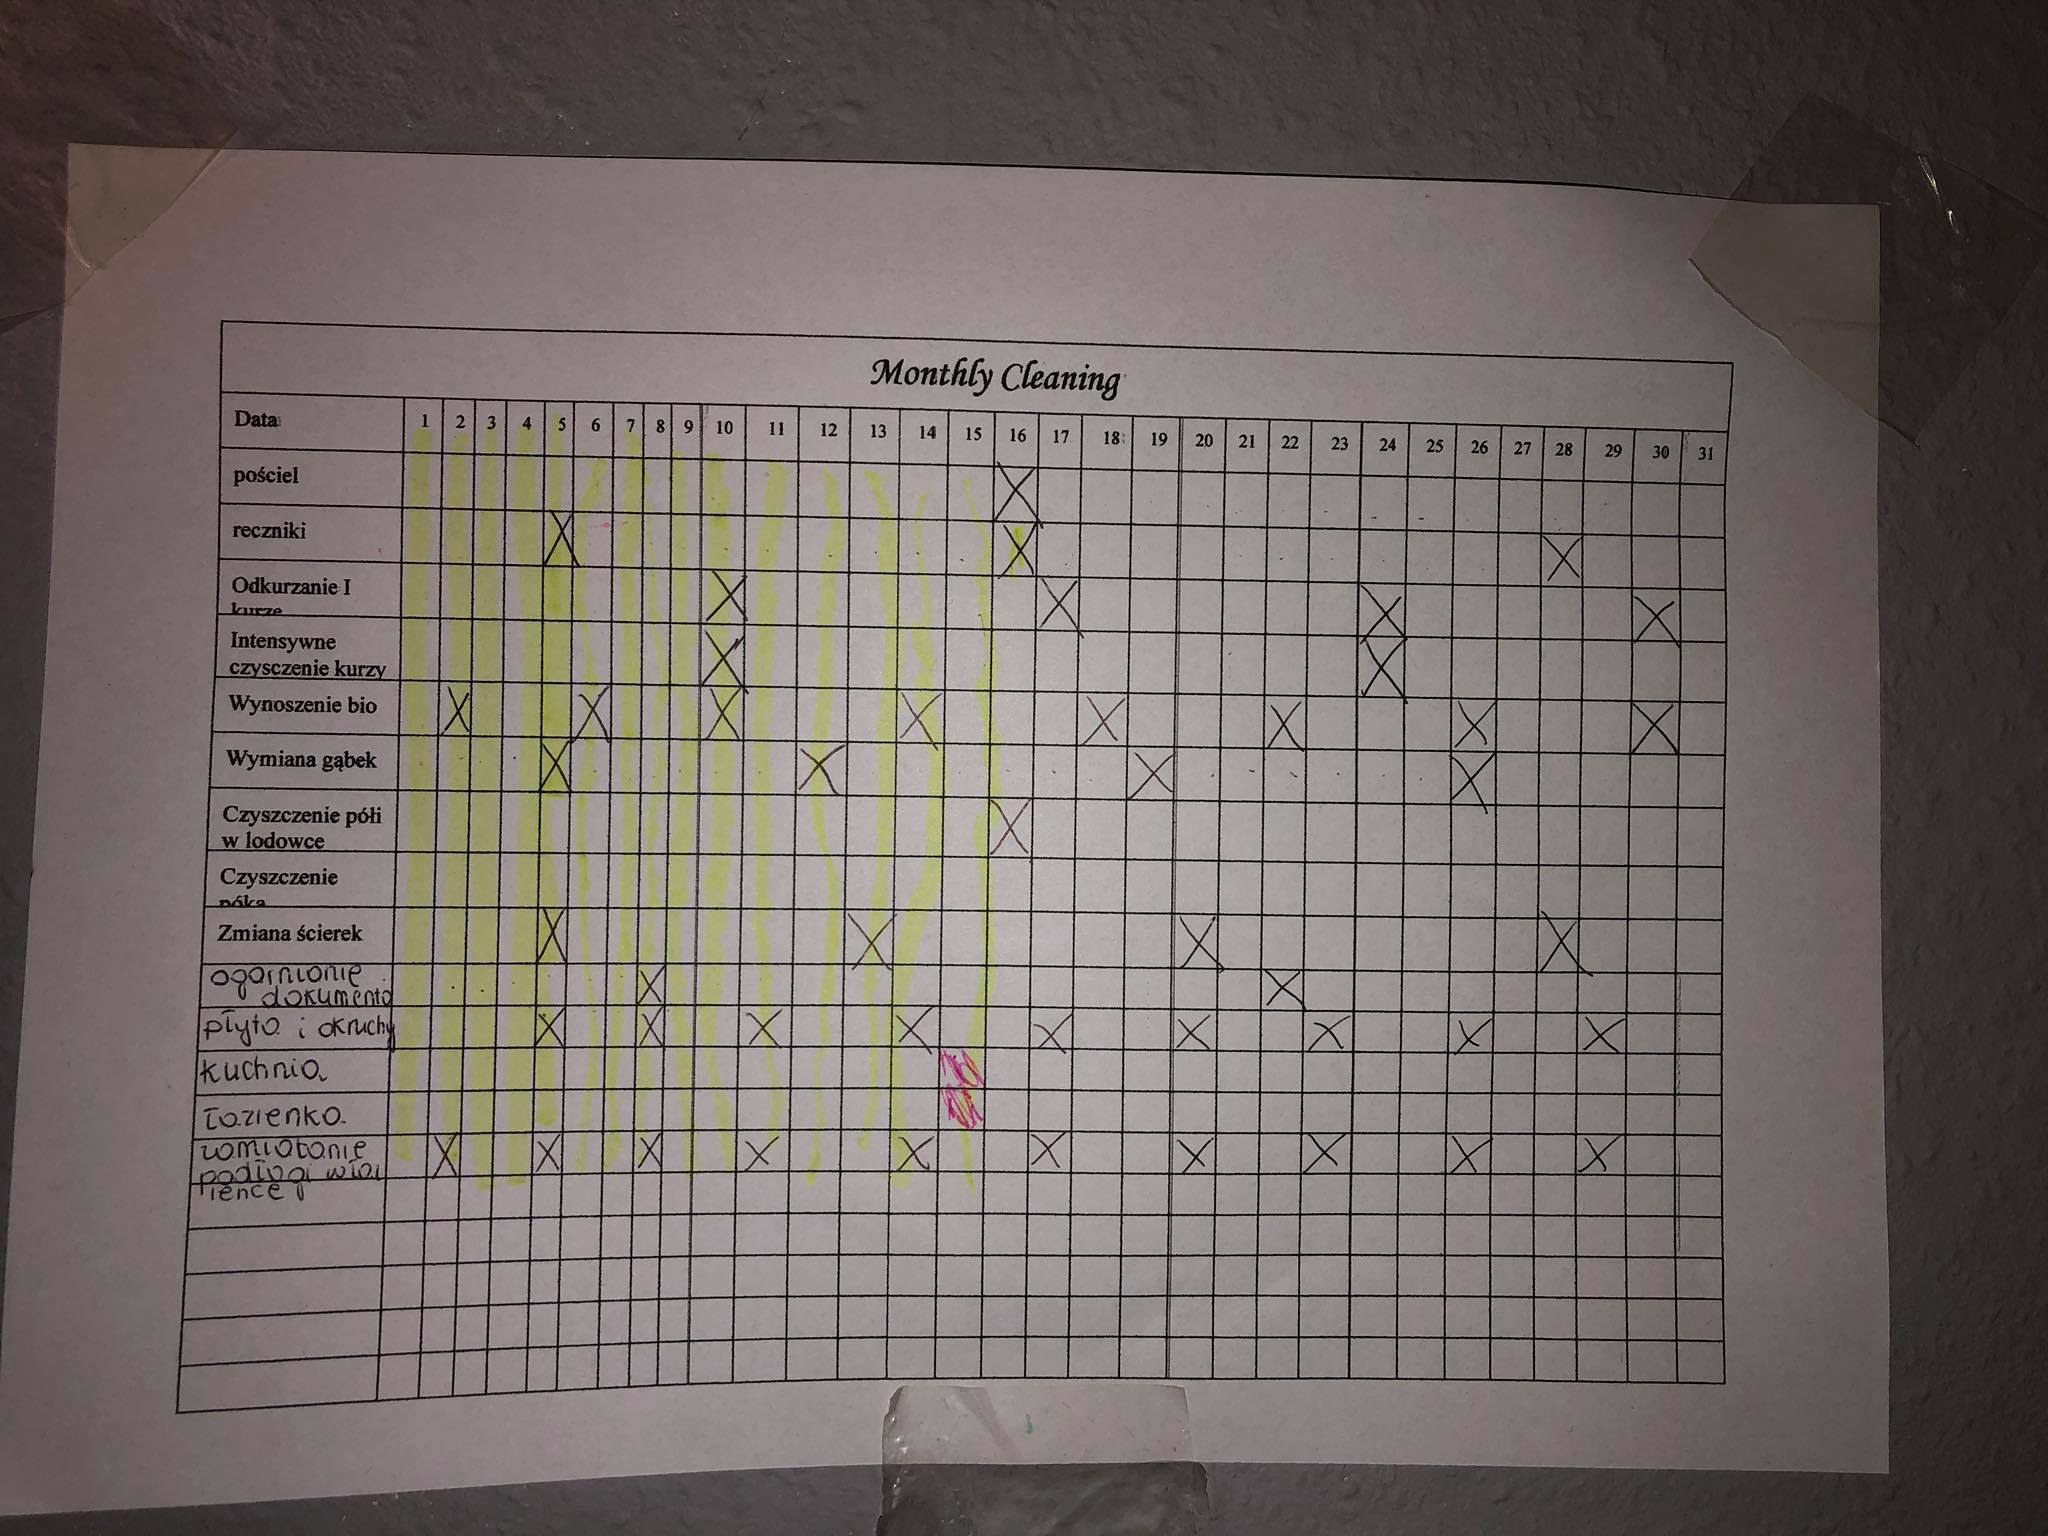 Monthly Cleaning
Data 1 2 3 4 5 6 7 8 9 10 11 12 13 14 15 16 17 18 19 20 21 22 23 24 25 26 27 28 29 30 31
pościel X
reczniki X X X
Odkurzanie I X X X X
kurze
Intensywne X X
czysczenie kurzy
Wynoszenie bio X X X X X X X X
Wymiana gąbek X X X X
Czyszczenie półi X
w lodowce
Czyszczenie
półka
Zmiana ścierek X X X X
ogarnianie X X
dokumento
płyta i okruchy X X X X X X X X X
kuchnia
łazienka
zamiatanie X X X X X X X X X X
podłogi włai
ience